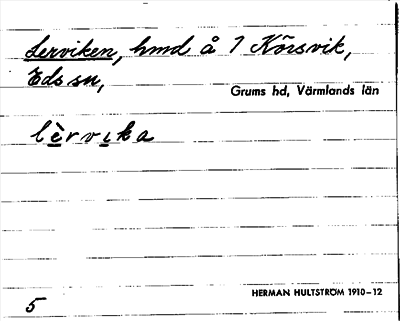 Lerviken, hmd å 7 Körsvik,
Eds sn,
Grums hd, Värmlands län
lèrvika
HERMAN HULTSTRÖM 1910–12
5